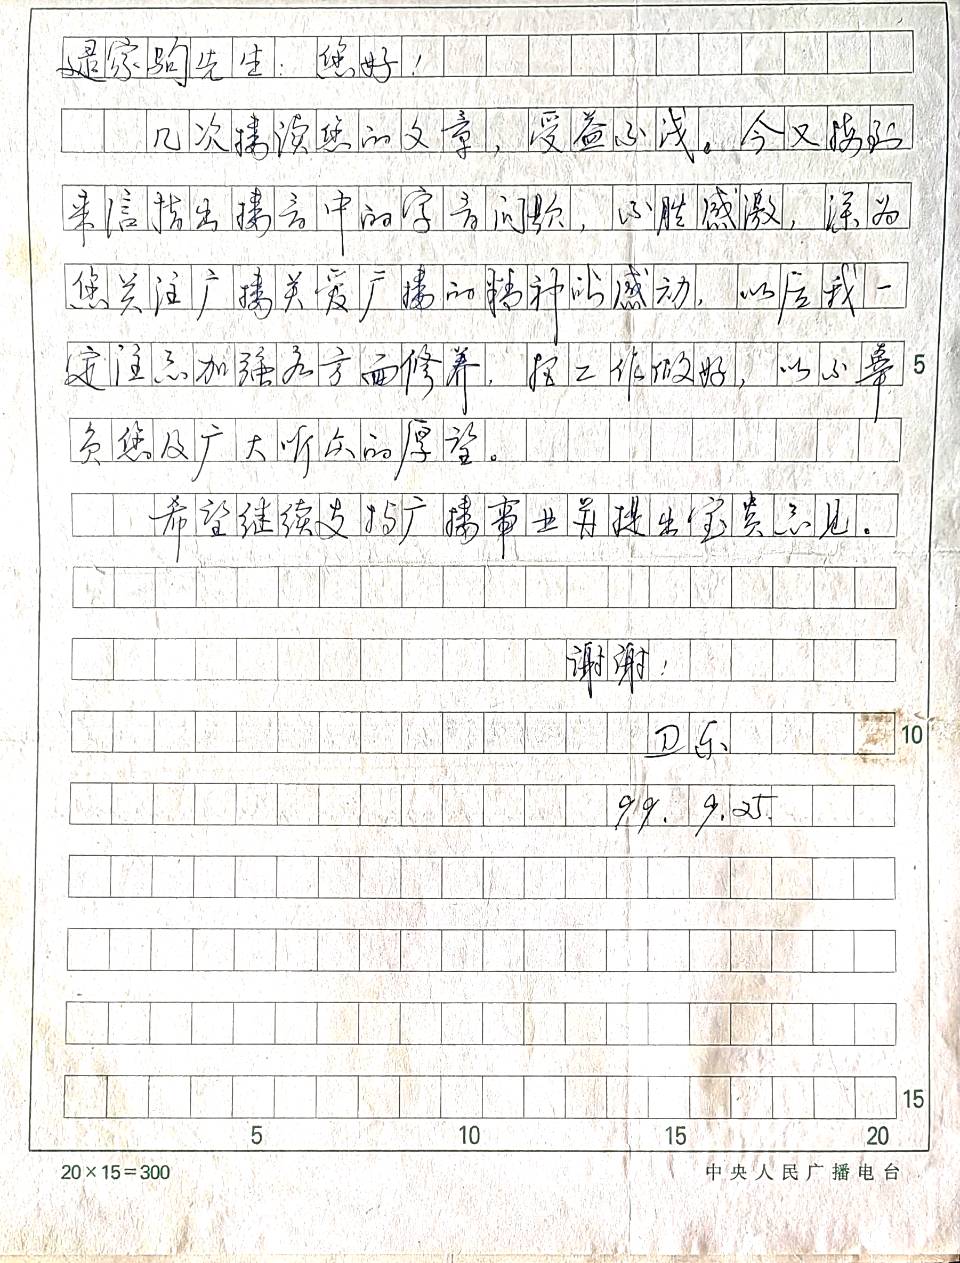 逯家驹先生:您好!
几次播读您的文章,受益不浅。今又接到
来信指出播音中的字音问题,不胜感激,深为
您关注广播关爱广播的精神所感动,以后我一
定注意加强各方面修养,把工作做好,以不辜 5
负您及广大听众的厚望。
希望继续支持广播事业并提出宝贵意见。
谢谢!
卫东 10
99.9.25.
15
5 10 15 20
20×15=300 中央人民广播电台